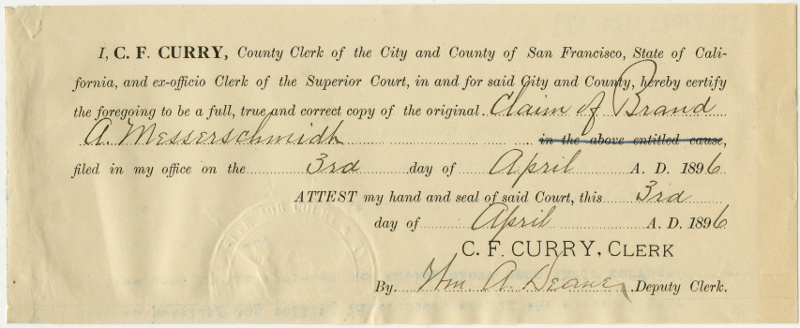 I, C. F. CURRY, County Clerk of the City and County of San Francisco, State of Cali-
fornia, and ex-officio Clerk of the Superior Court, in and for said City and County, hereby certify
the foregoing to be a full, true and correct copy of the original Claim of Brand
A. Messerschmidt in the above entitled cause,
filed in my office on the 3rd day of April A. D. 1896
ATTEST my hand and seal of said Court, this 3rd
day of April A. D. 1896
C. F. CURRY, CLERK
By Wm. A. Deane, Deputy Clerk.